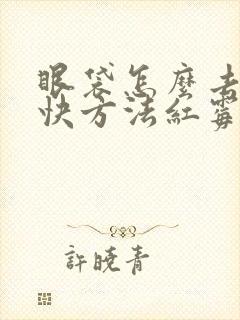 眼袋怎麼去
快方法紅霉
許曉青